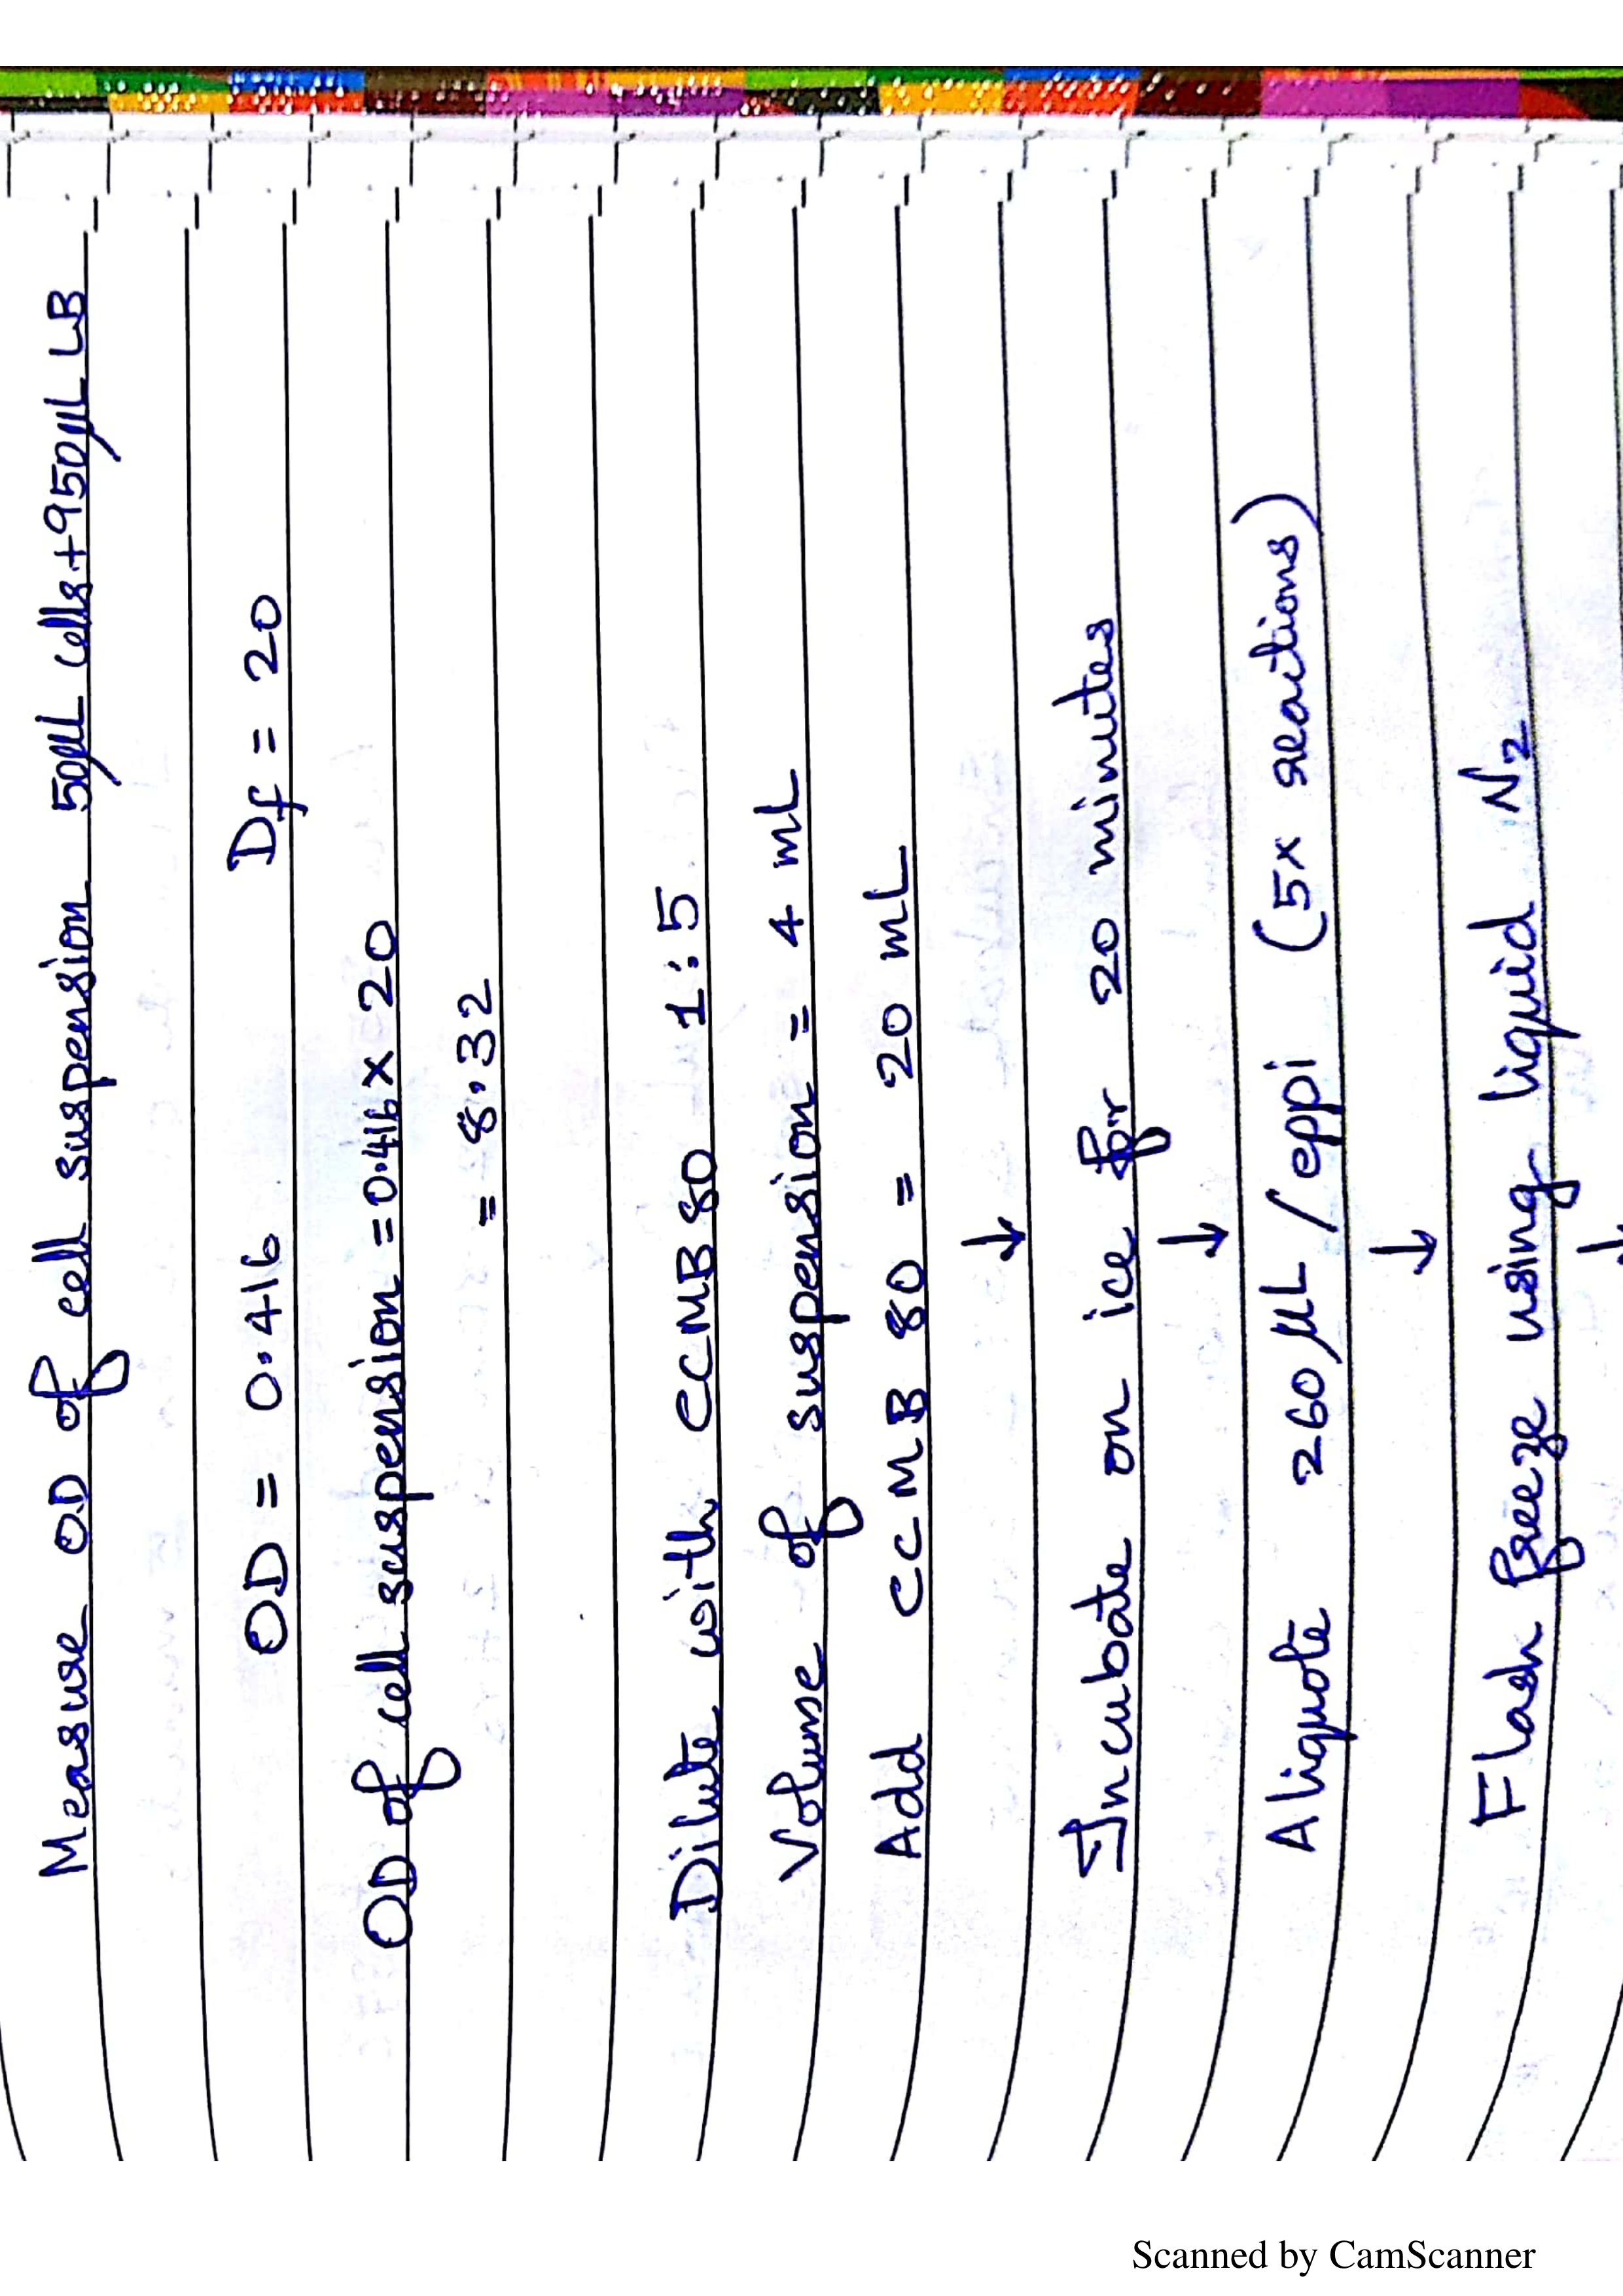 Measure OD of cell suspension 50µL cells+950µL LB
OD = 0.416 Df = 20
OD of cell suspension = 0.416 x 20
= 8.32
Dilute with CCMB80 1:5
Volume of suspension = 4 mL
Add CCMB 80 = 20 mL
↓
Incubate on ice for 20 minutes
↓
Aliquote 260 µL / eppi (5x reactions)
↓
Flash freeze using liquid N₂
↓
Scanned by CamScanner